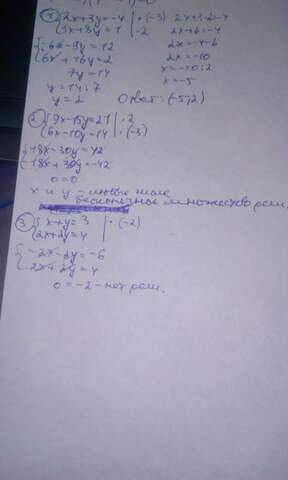 1) { 2x+3y=-4 | ·(-3)   2x+3·2=-4
3x+8y=1 | ·2   2x+6=-4
{ -6x-9y=12   2x=-4-6
6x+16y=2   2x=-10
7y=14   x=-10:2
y=14:7   x=-5
y=2   Ответ: (-5;2)
2) { 9x-15y=21 | ·2
6x-10y=14 | ·(-3)
{ 18x-30y=42
-18x+30y=-42
0=0
x и y - любые числа
бесконечное множество реш.
3) { x+y=3 | ·(-2)
2x+2y=4
{ -2x-2y=-6
2x+2y=4
0=-2 - нет реш.